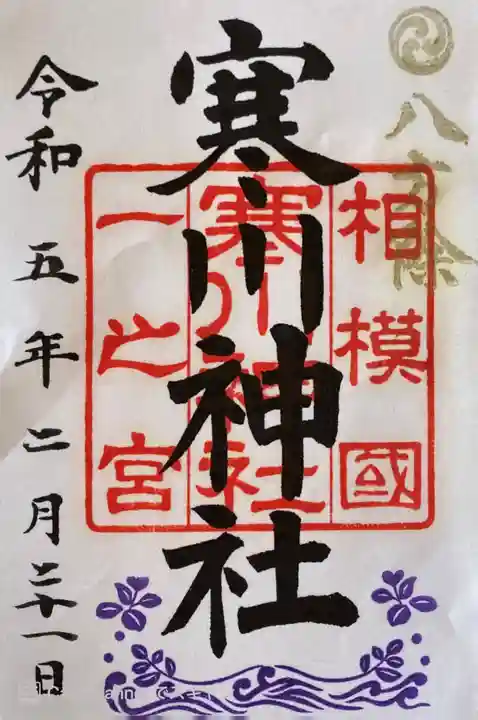 八方除
相模國
寒川神社
一之宮
寒川神社
令和五年二月二十一日